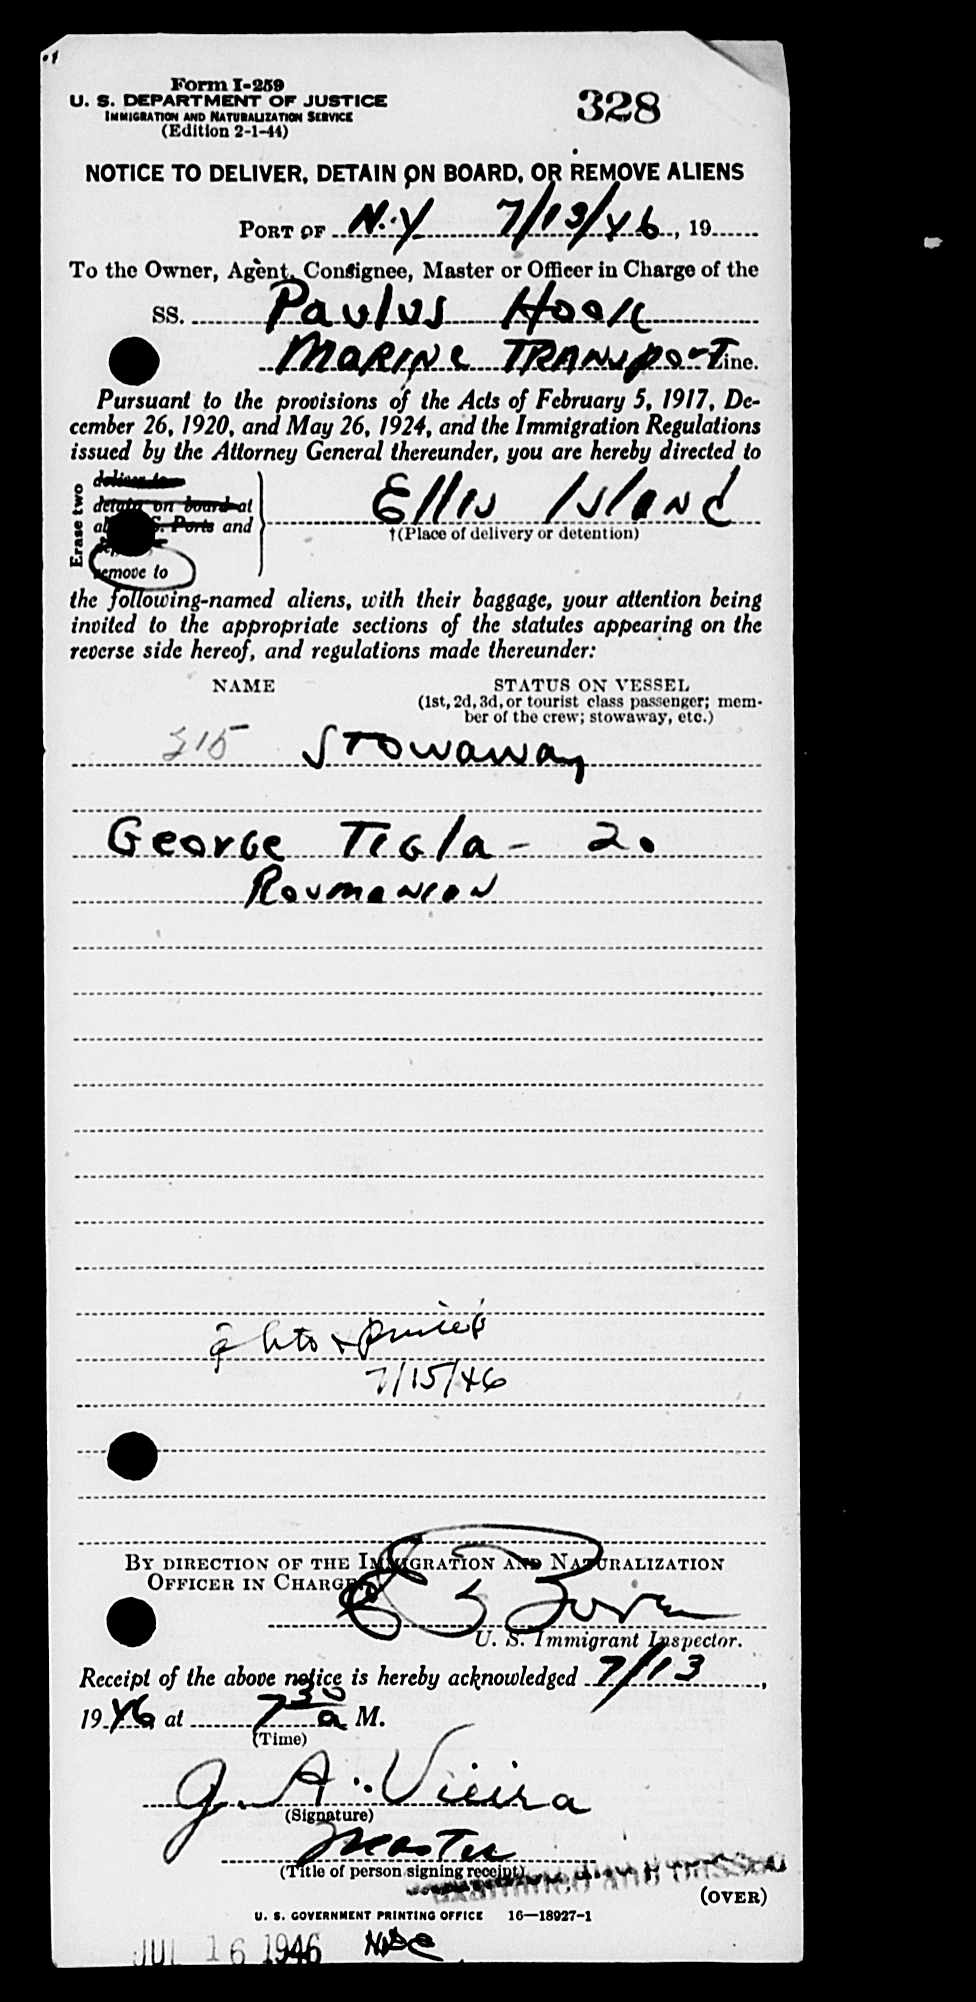 Form I-259
U. S. DEPARTMENT OF JUSTICE
IMMIGRATION AND NATURALIZATION SERVICE
(Edition 2-1-44)
328
NOTICE TO DELIVER, DETAIN ON BOARD, OR REMOVE ALIENS
PORT OF N.Y 7/13/46, 19
To the Owner, Agent, Consignee, Master or Officer in Charge of the
SS. Paulus Hook
MARINE TRANSPORT Line.
Pursuant to the provisions of the Acts of February 5, 1917, De-
cember 26, 1920, and May 26, 1924, and the Immigration Regulations
issued by the Attorney General thereunder, you are hereby directed to
Erase two
deliver to
detain on board at
Ports and
remove to
Ellis Island
†(Place of delivery or detention)
the following-named aliens, with their baggage, your attention being
invited to the appropriate sections of the statutes appearing on the
reverse side hereof, and regulations made thereunder:
NAME STATUS ON VESSEL
(1st, 2d, 3d, or tourist class passenger; mem-
ber of the crew; stowaway, etc.)
315 Stowaway
George Tigla - 20
Roumanian
photo & printed
7/15/46
BY DIRECTION OF THE IMMIGRATION AND NATURALIZATION
OFFICER IN CHARGE
U. S. Immigrant Inspector.
Receipt of the above notice is hereby acknowledged 7/13,
1946 at 7 30 a M.
(Time)
J. A. Vieira
(Signature)
Master
(Title of person signing receipt)
examined and passed
(OVER)
U. S. GOVERNMENT PRINTING OFFICE 16—18927-1
JUL 16 1946